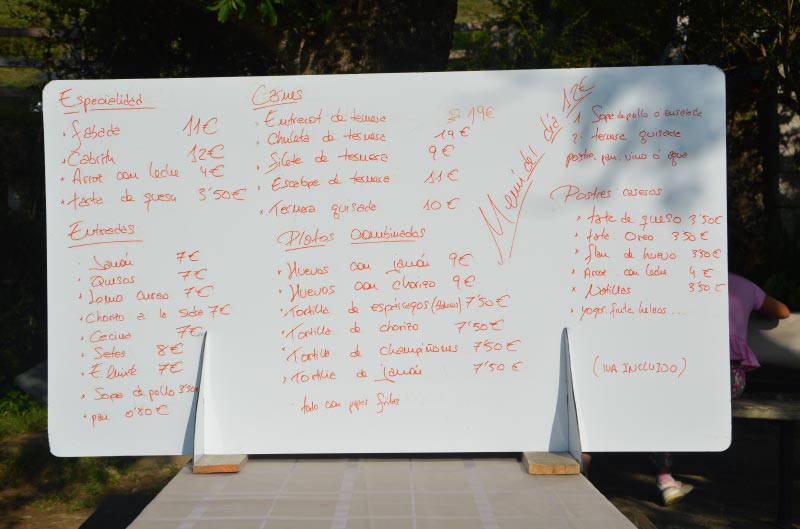 Especialidad
· fabada 11€
· Cabrito 12€
· Arroz con leche 4€
· tarta de queso 3'50€
Entradas
· Jamón 7€
· Quesos 7€
· Lomo curao 7€
· Chorizo a la sidra 7€
· Cecina 7€
· Setas 8€
· 7€
· Sopa de pollo 3'50
· pan 0'80€
Carnes
· Entrecot de ternera 19€
· Chuleta de ternera 19€
· Filete de ternera 9€
· Escalope de ternera 11€
· Ternera guisada 10€
Platos combinados
· Huevos con jamón 9€
· Huevos con chorizo 9€
· Tortilla de espárragos 7'50€
· Tortilla de chorizo 7'50€
· Tortilla de champiñones 7'50€
· Tortilla de jamón 7'50€
· todo con papas fritas
Menú del día 12€
1. Sopa de pollo ó ensalada
2. ternera guisada
postre, pan, vino ó agua
Postres caseros
· tarta de queso 3'50€
· tarta Oreo 3'50€
· flan de huevo 3'50€
· Arroz con leche 4€
· Natillas 3'50€
· yogur, fruta, helaos....
(IVA INCLUIDO)